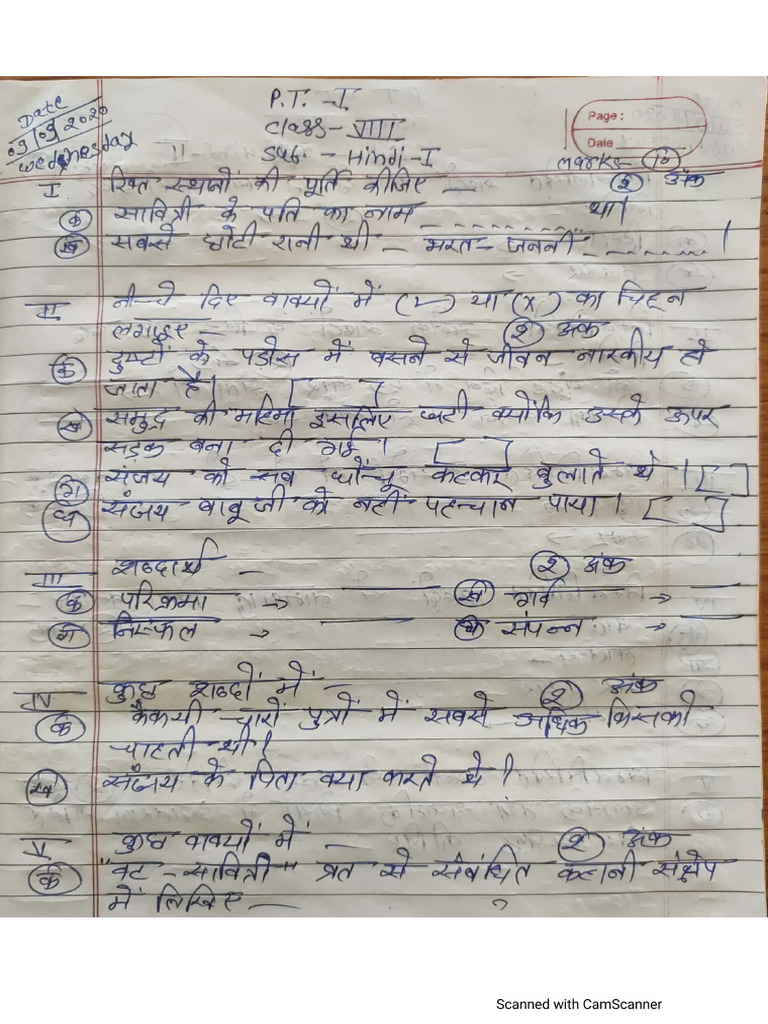 Date
09/09/2020
Wednesday
P.T. - I
Class - VIII
Sub. - Hindi - I
Page :
Date
Marks - 10
I रिक्त स्थानों की पूर्ति कीजिए - २ अंक
क सावित्री के पति का नाम - - - - - - - - था।
ख सबसे छोटी रानी थी - भरत - जननी - - - - - - ।
II नीचे दिए वाक्यों में (✓) या (x) का चिह्न
लगाइए - २ अंक
क दुष्टों के पड़ोस में बसने से जीवन नारकीय हो
जाता है।
ख समुद्र की महिमा इसलिए घटी क्योंकि उसके ऊपर
सड़क बना दी गई।
ग संजय को सब घोंचू कहकर बुलाते थे।
घ संजय बाबूजी को नहीं पहचान पाया।
III शब्दार्थ - २ अंक
क परिक्रमा → ख गर्व →
ग निस्फल → घ संपन्न →
IV कुछ शब्दों में - २ अंक
क कैकयी चारों पुत्रों में सबसे अधिक किसको
चाहती थी?
ख संजय के पिता क्या करते थे?
V कुछ वाक्यों में - २ अंक
क "वट - सावित्री" व्रत से संबंधित कहानी संक्षेप
में लिखिए -
Scanned with CamScanner